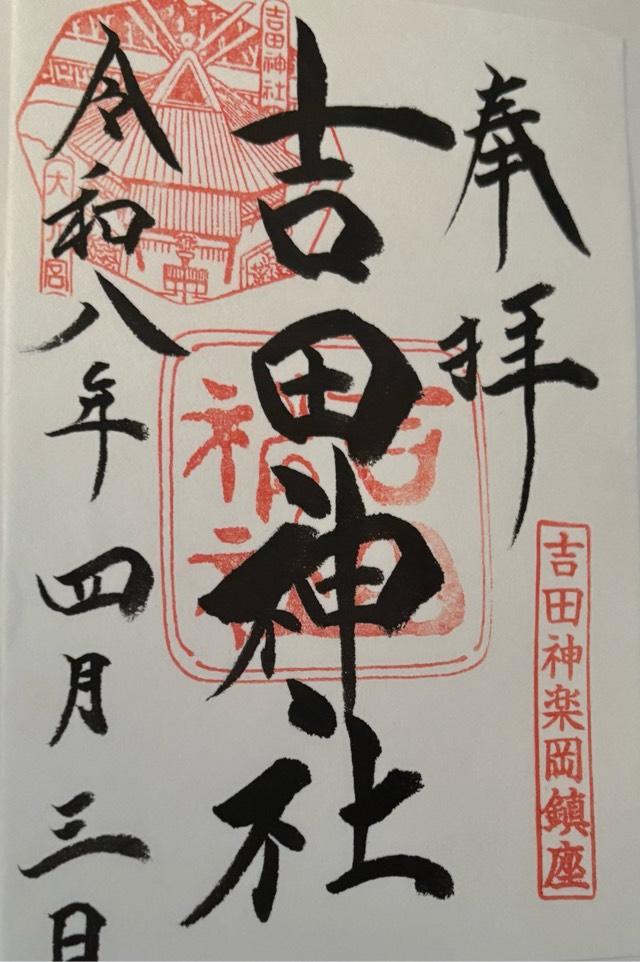 奉拝
吉田神楽岡鎮座
吉田神社
吉田神社
令和八年四月三日
吉田神社